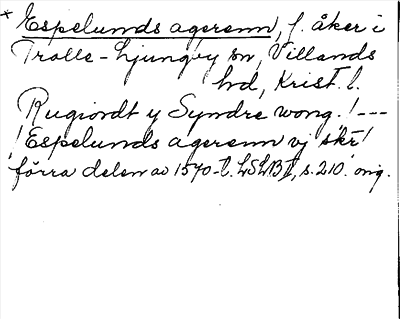 * Espelunds agerenn, f. åker i
Tralle-Ljungby sn, Villands
hd, Krist. l.
Rugiordt y Syndre wong. ! ---
! Espelunds agerenn vj skr !
förra delen av 1570-t. LSLB I, s. 210. orig.